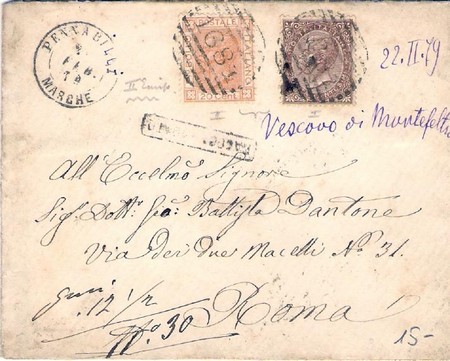 PENNABILLI
FEB.
79
MARCHE
POSTALE
ITALIANO
20 CENT
22.II.79
Vescovo di Montefeltro
All'Eccelmo Signore
Sig. Dott. Gio: Battista Dantone
Via dei due Macelli No 31.
Roma
12 1/2
No. 30
15-